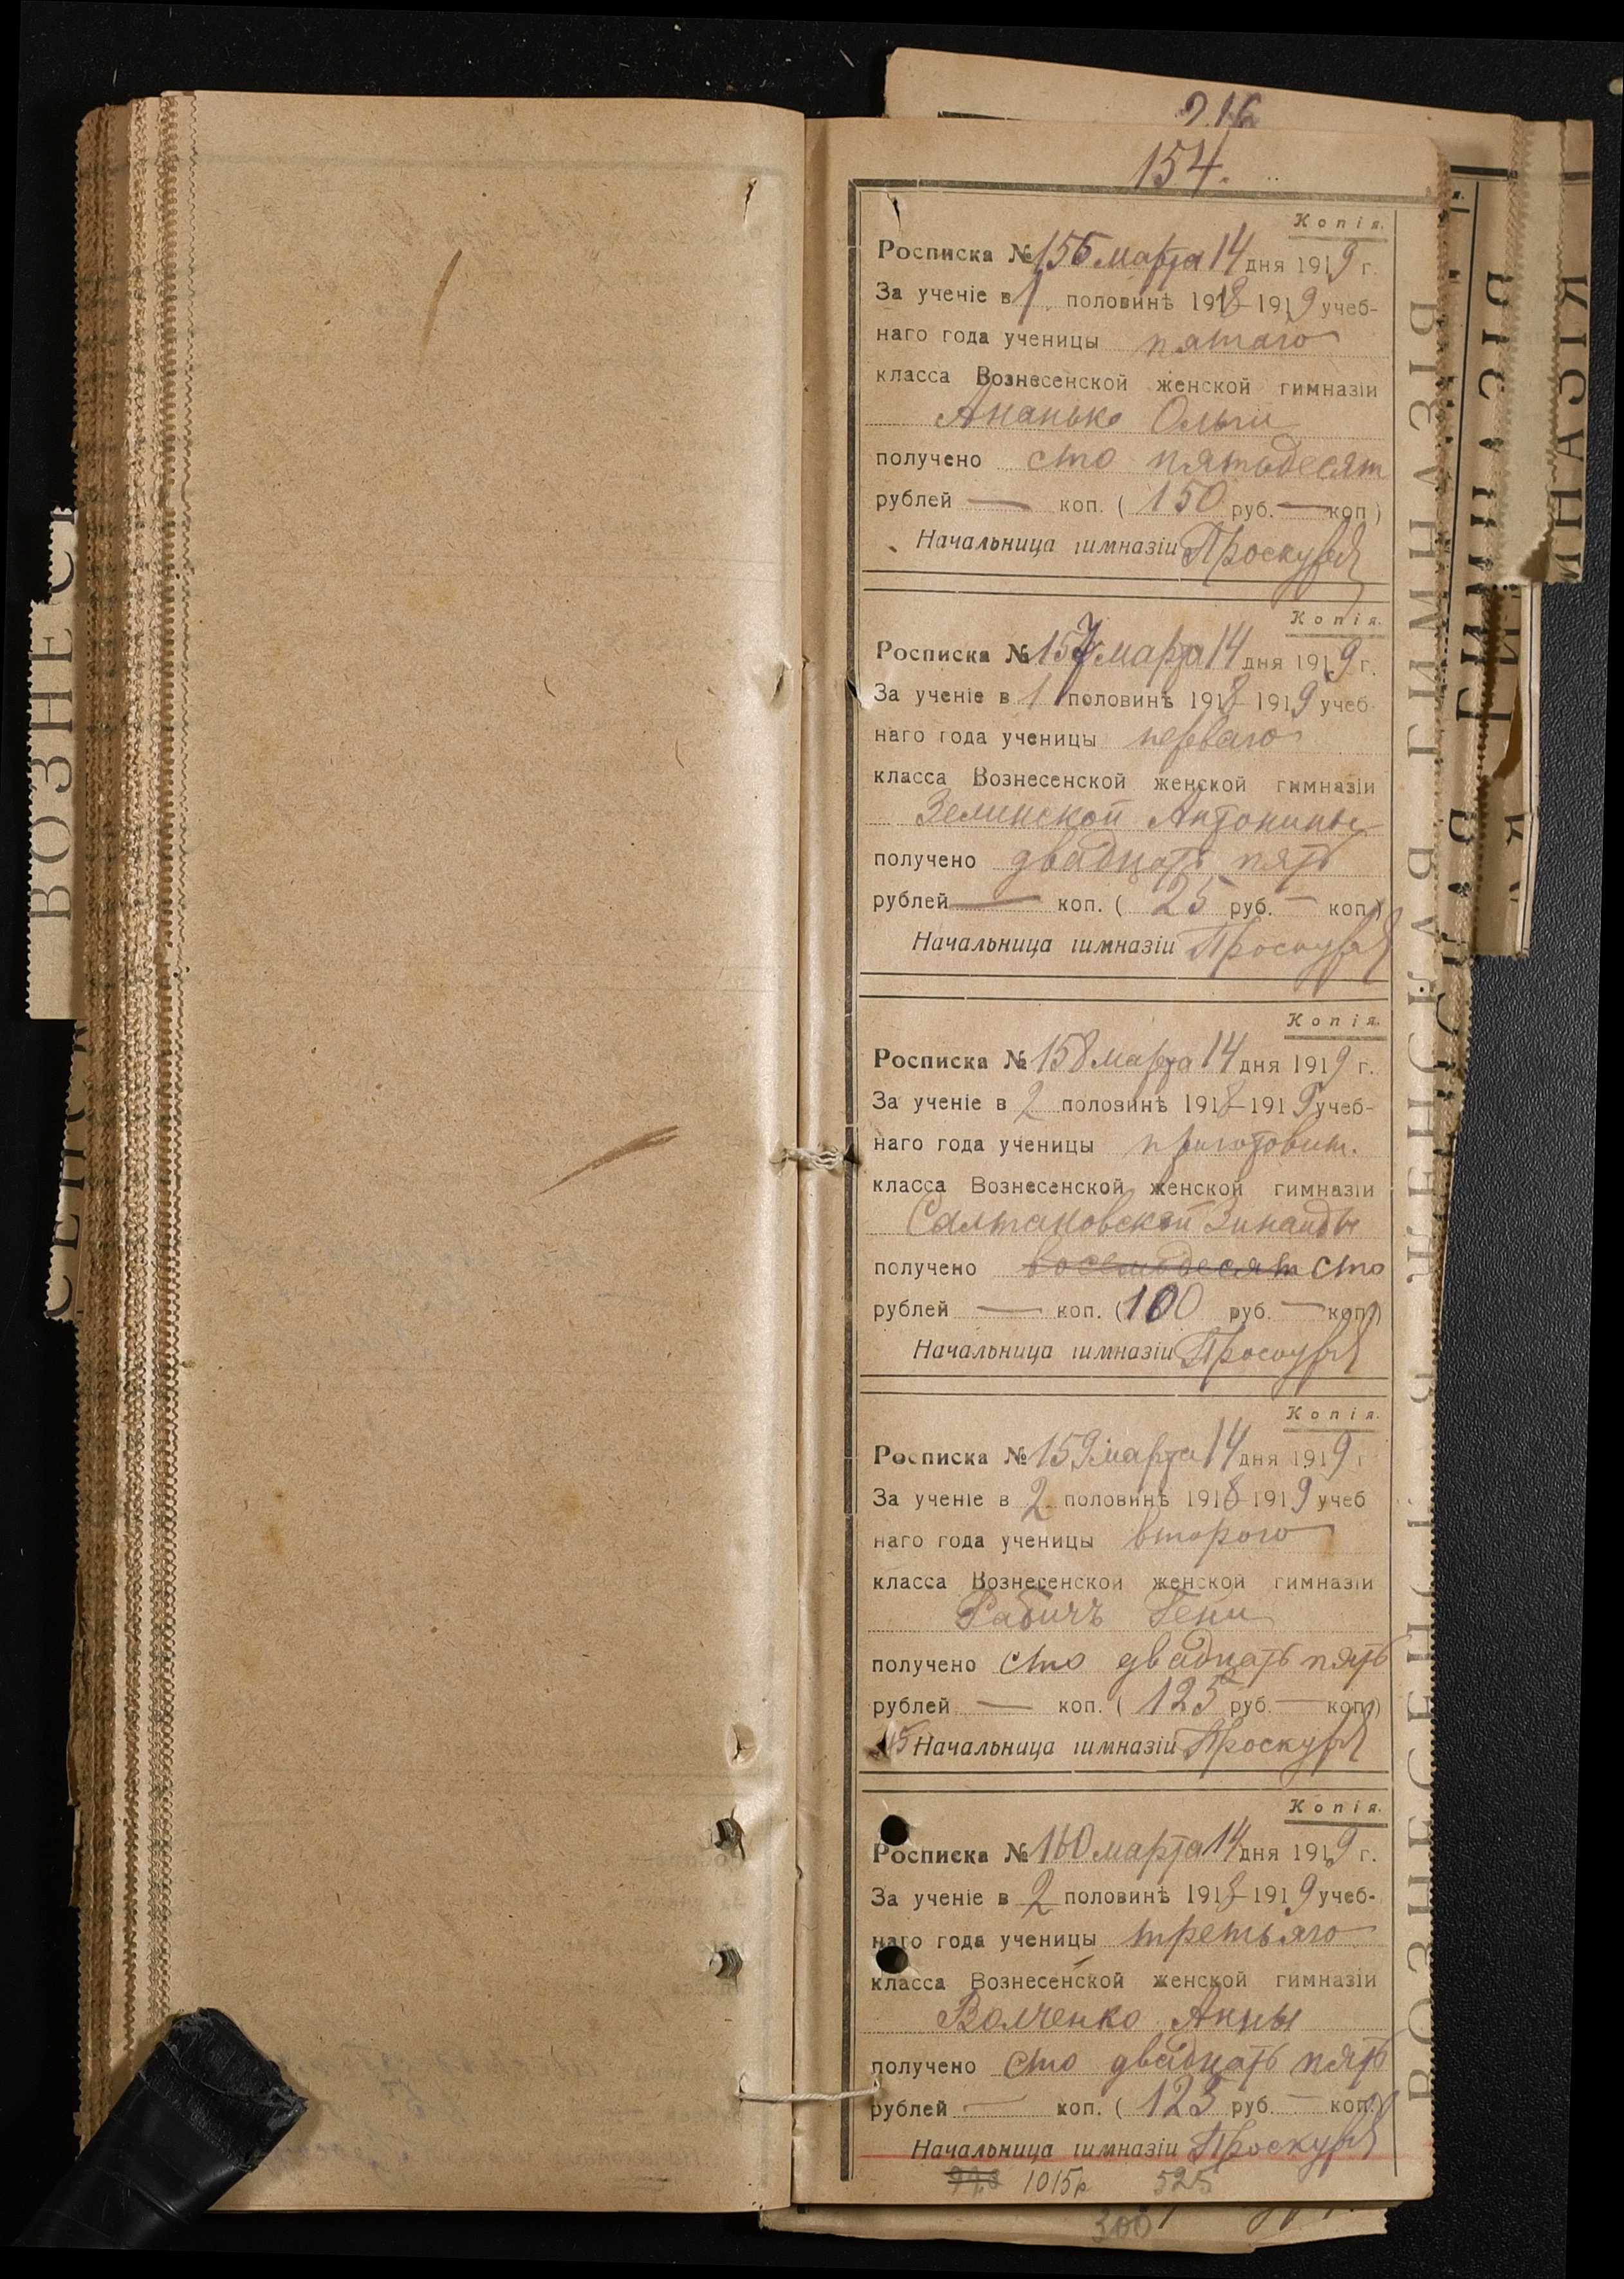 216
154.
Копія.
Росписка № 156 марта 14 дня 1919 г.
За ученіе в 1 половинѣ 1918-1919 учеб-
наго года ученицы пятаго
класса Вознесенской женской гимназіи
Ананько Ольги
получено сто пятьдесят
рублей — коп. ( 150 руб. — коп)
Начальница гимназіи
Копія.
Росписка № 157 марта 14 дня 1919 г.
За ученіе в 1 половинѣ 1918 1919 учеб
наго года ученицы перваго
класса Вознесенской женской гимназіи
Зелинской Антонины
получено двадцать пять
рублей — коп. ( 25 руб. — коп.)
Начальница гимназіи
Копія.
Росписка № 158 марта 14 дня 1919 г.
За ученіе в 2 половинѣ 1918-1919 учеб-
наго года ученицы приготовит.
класса Вознесенской женской гимназіи
Салтановской Зинаиды
получено восемьдесят сто
рублей — коп. (100 руб. — коп.)
Начальница гимназіи
Копія.
Росписка № 159 марта 14 дня 1919 г
За ученіе в 2 половинѣ 1918-1919 учеб
наго года ученицы второго
класса Вознесенской женской гимназіи
Рабичъ Гени
получено сто двадцать пять
рублей — коп. ( 125 руб — коп.)
Начальница гимназіи
Копія.
Росписка № 160 марта 14 дня 1919 г.
За ученіе в 2 половинѣ 1918-1919 учеб-
наго года ученицы третьяго
класса Вознесенской женской гимназіи
Волченко Анны
получено сто двадцать пять
рублей — коп. ( 125 руб. — коп.)
Начальница гимназіи
1015р 525
300
ВОЗНЕСЕНСКАЯ ЖЕНСКАЯ ГИМНАЗІЯ
ВОЗНЕС